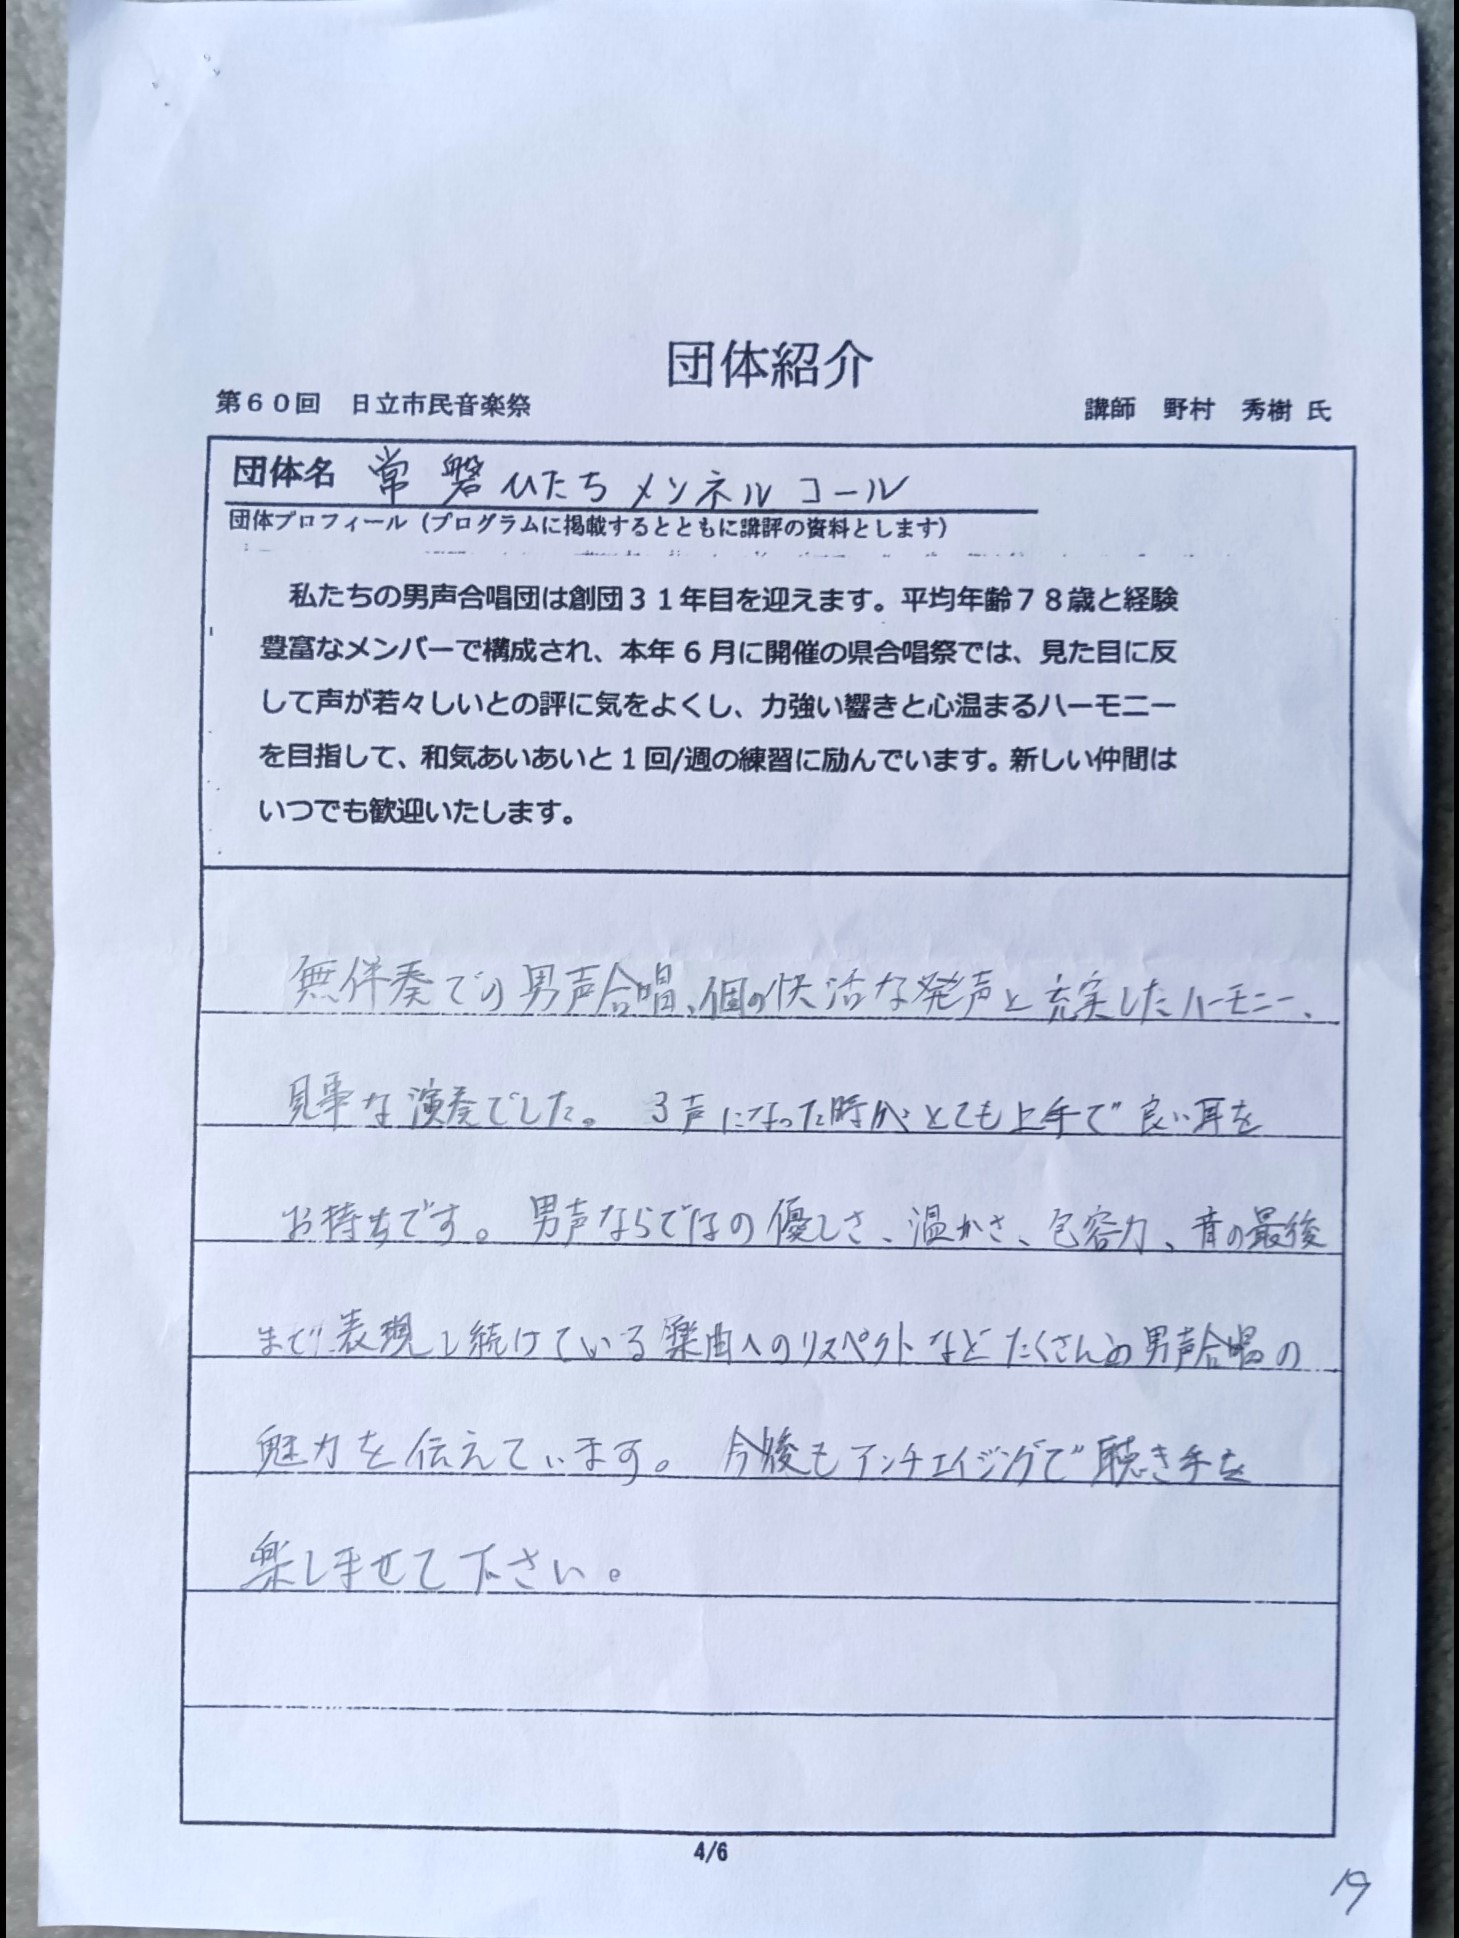 団体紹介
第６０回　日立市民音楽祭
講師　野村　秀樹 氏
団体名 常磐ひたちメンネルコール
団体プロフィール（プログラムに掲載するとともに講評の資料とします）
私たちの男声合唱団は創団３１年目を迎えます。平均年齢７８歳と経験
豊富なメンバーで構成され、本年６月に開催の県合唱祭では、見た目に反
して声が若々しいとの評に気をよくし、力強い響きと心温まるハーモニー
を目指して、和気あいあいと１回/週の練習に励んでいます。新しい仲間は
いつでも歓迎いたします。
無伴奏での男声合唱、個の快活な発声と充実したハーモニー、
見事な演奏でした。 3声になった時がとても上手で良い耳を
お持ちです。 男声ならではの優しさ、温かさ、包容力、音の最後
まで表現し続けている楽曲へのリスペクトなどたくさんの男声合唱の
魅力を伝えています。 今後もアンチエイジングで聴き手を
楽しませて下さい。
4/6
19